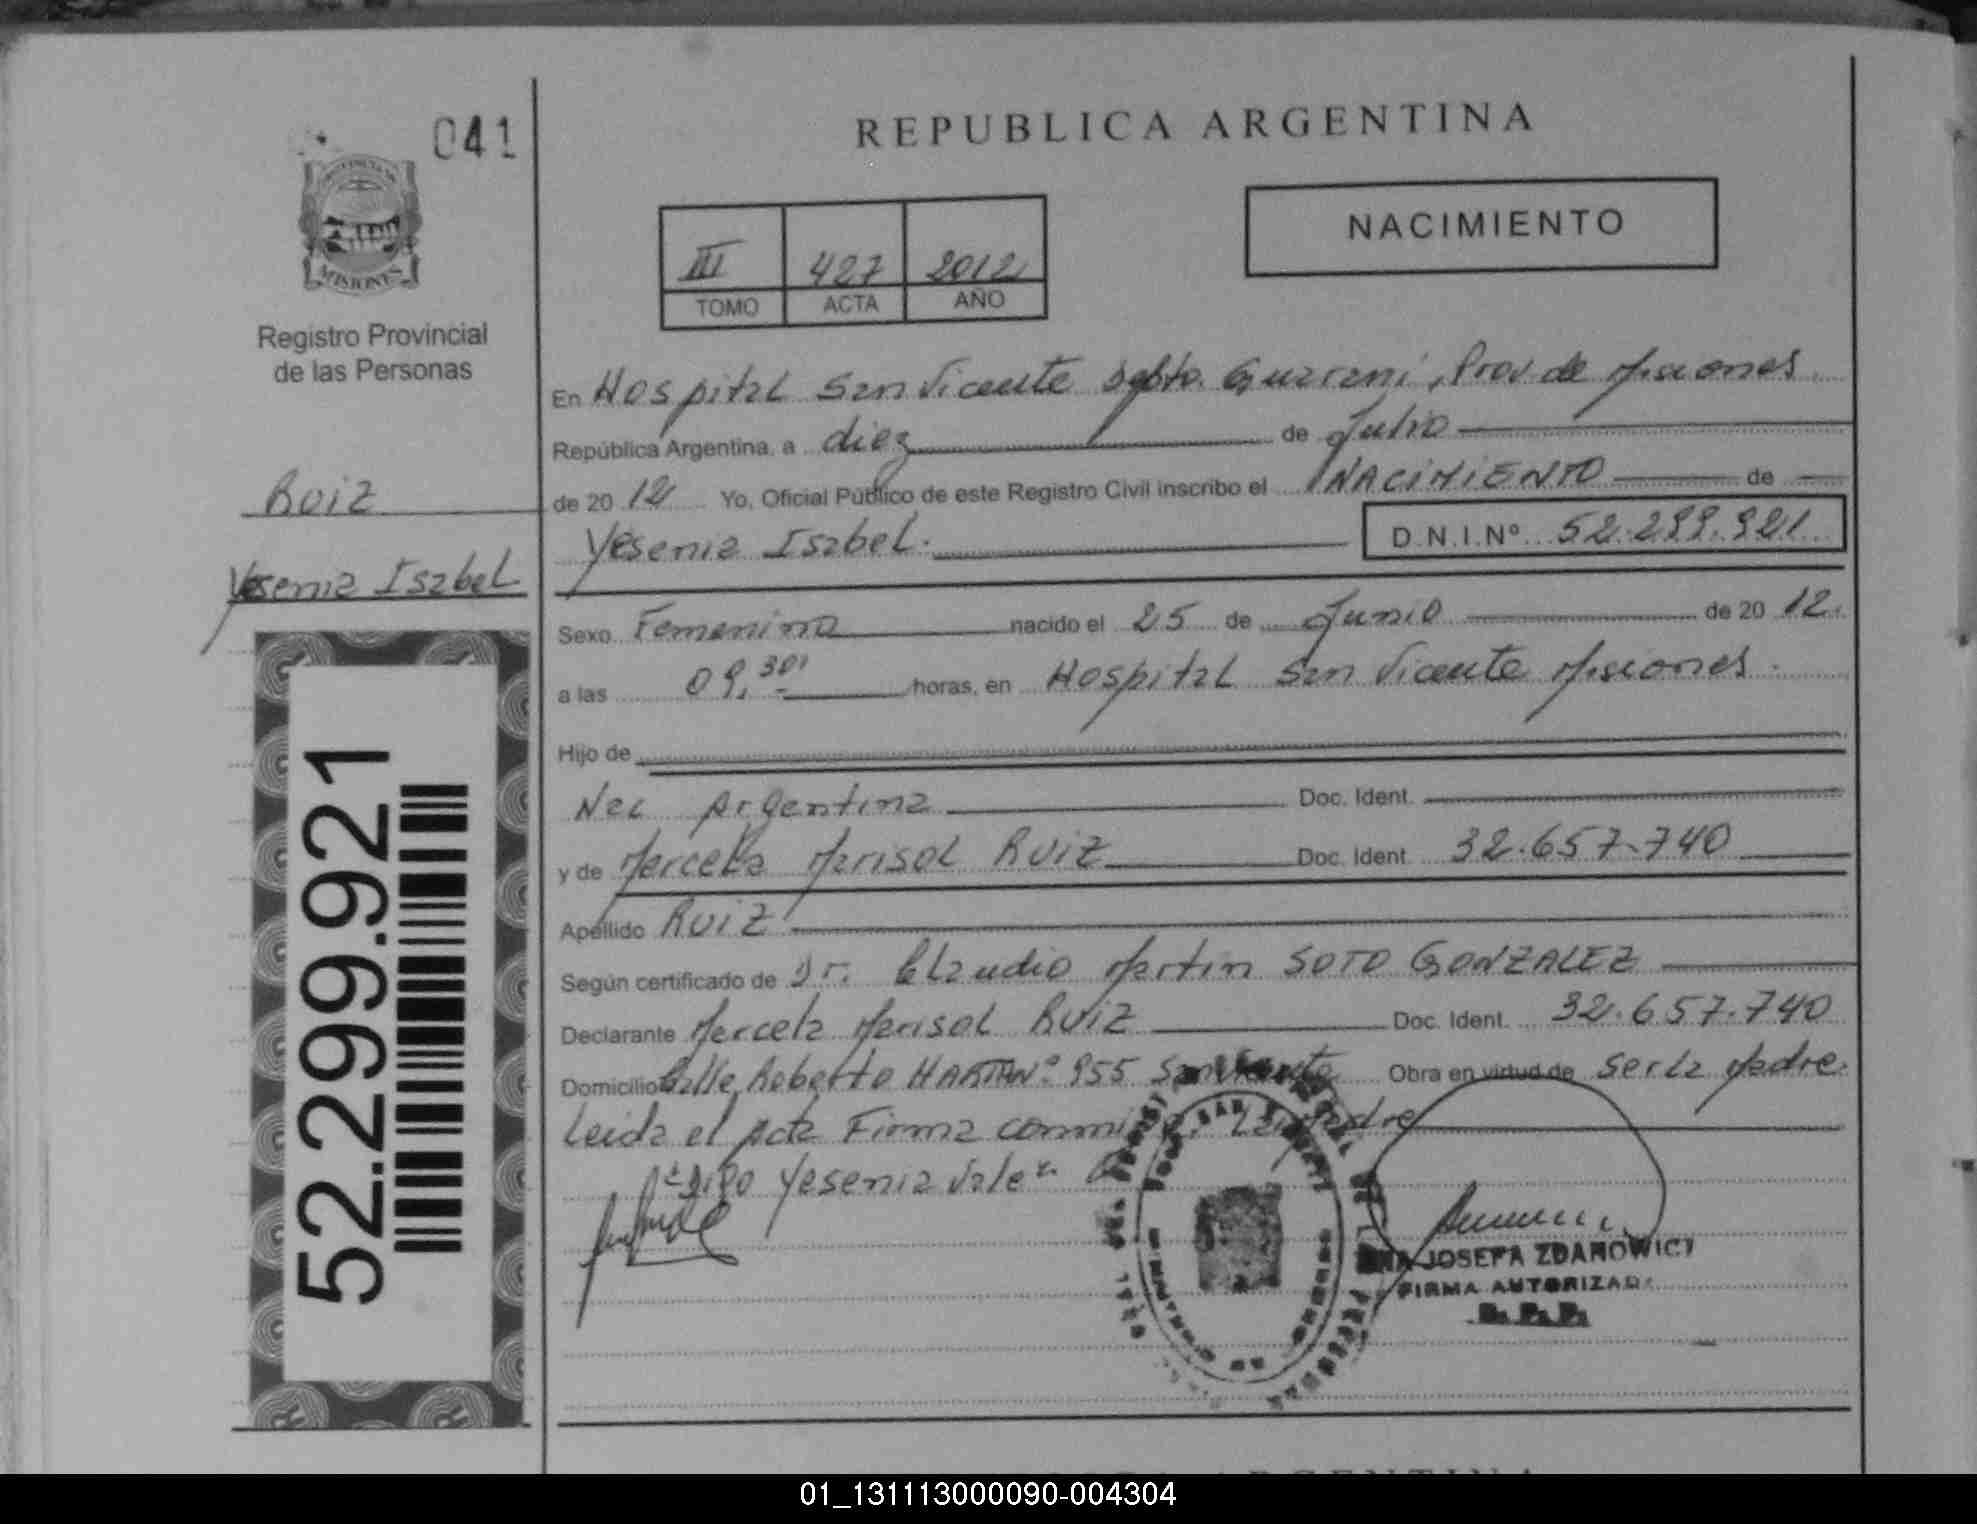 041
MISIONES
Registro Provincial
de las Personas
Ruiz
Yesenia Isabel
52.299.921
REPUBLICA ARGENTINA
III 427 2012
TOMO ACTA AÑO
NACIMIENTO
En Hospital San Vicente Dpto. Guarani, Prov. de Misiones
República Argentina, a diez de Julio
de 20 12 Yo, Oficial Público de este Registro Civil inscribo el NACIMIENTO de
Yesenia Isabel. D.N.I.Nº 52.299.921
Sexo Femenino nacido el 25 de Junio de 20 12.
a las 09,30' horas, en Hospital San Vicente Misiones.
Hijo de
Nac Argentina Doc. Ident.
y de Marcela Marisol Ruiz Doc. Ident. 32.657.740
Apellido Ruiz
Según certificado de Dr. Claudio Martin SOTO GONZALEZ
Declarante Marcela Marisol Ruiz Doc. Ident. 32.657.740
Domicilio Calle Roberto Nº 955 San Vicente Obra en virtud de ser la Madre
Leida el Acta Firma conmigo, La Madre
Yesenia Vale
JOSEFA ZDANOWICZ
FIRMA AUTORIZADA
R. P. P.
01_131113000090-004304